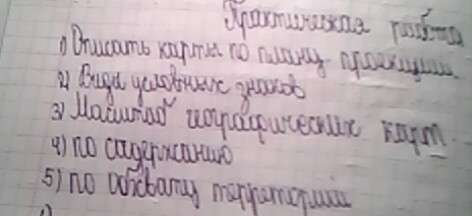 Практическая работа
1) Описать карты по плану проекции
2) Виды условных знаков
3) Масштаб географических карт
4) по содержанию
5) по охвату территории